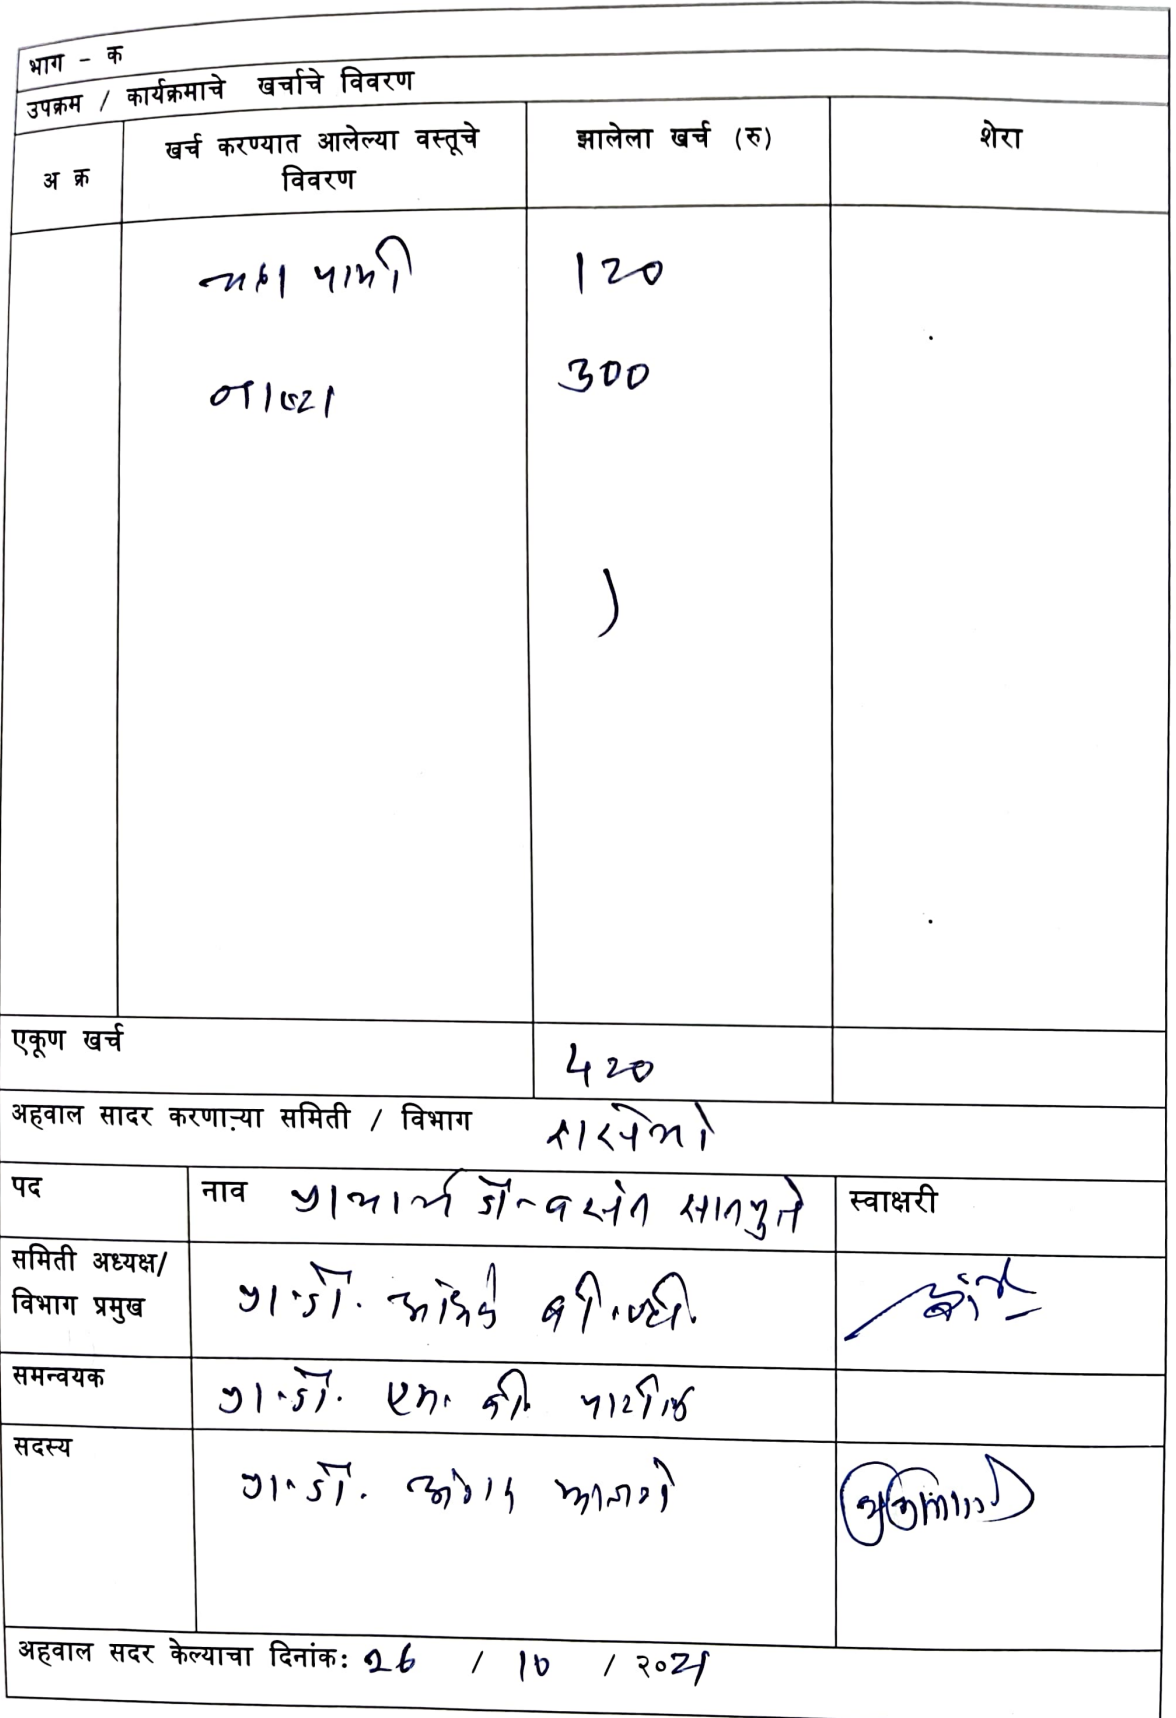 भाग - क
उपक्रम / कार्यक्रमाचे खर्चाचे विवरण
अ क्र
खर्च करण्यात आलेल्या वस्तूचे
विवरण
झालेला खर्च (रु)
शेरा
चहा पाणी 120
नाष्टा 300
एकूण खर्च 420
अहवाल सादर करणाऱ्या समिती / विभाग रासेयो
पद नाव प्राचार्य डॉ. वसंत सातपुते स्वाक्षरी
समिती अध्यक्ष/
विभाग प्रमुख
प्रा. डॉ. व्ही.
समन्वयक प्रा. डॉ. एम. पाटील
सदस्य प्रा. डॉ.
अहवाल सदर केल्याचा दिनांक: 26 / 10 / २०21